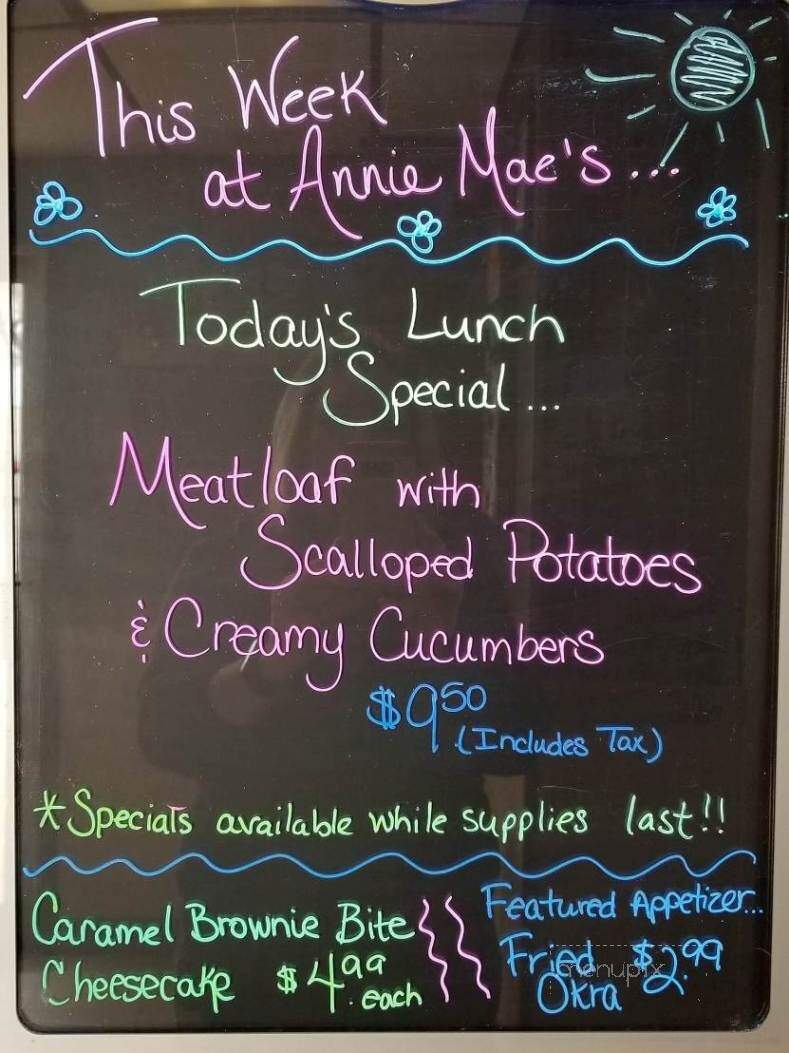 This Week
at Annie Mae's...
Today's Lunch
Special...
Meatloaf with
Scalloped Potatoes
& Creamy Cucumbers
$9.50
(Includes Tax)
*Specials available while supplies last!!
Caramel Brownie Bite
Cheesecake $4.99
each
Featured Appetizer...
Fried $2.99
Okra
menupix